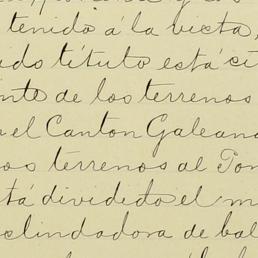 tenido á la vista,
ido título está si
nte de los terrenos
el Canton Galeana
os terrenos al Pon
tá dividido el m
eslindadora de bal